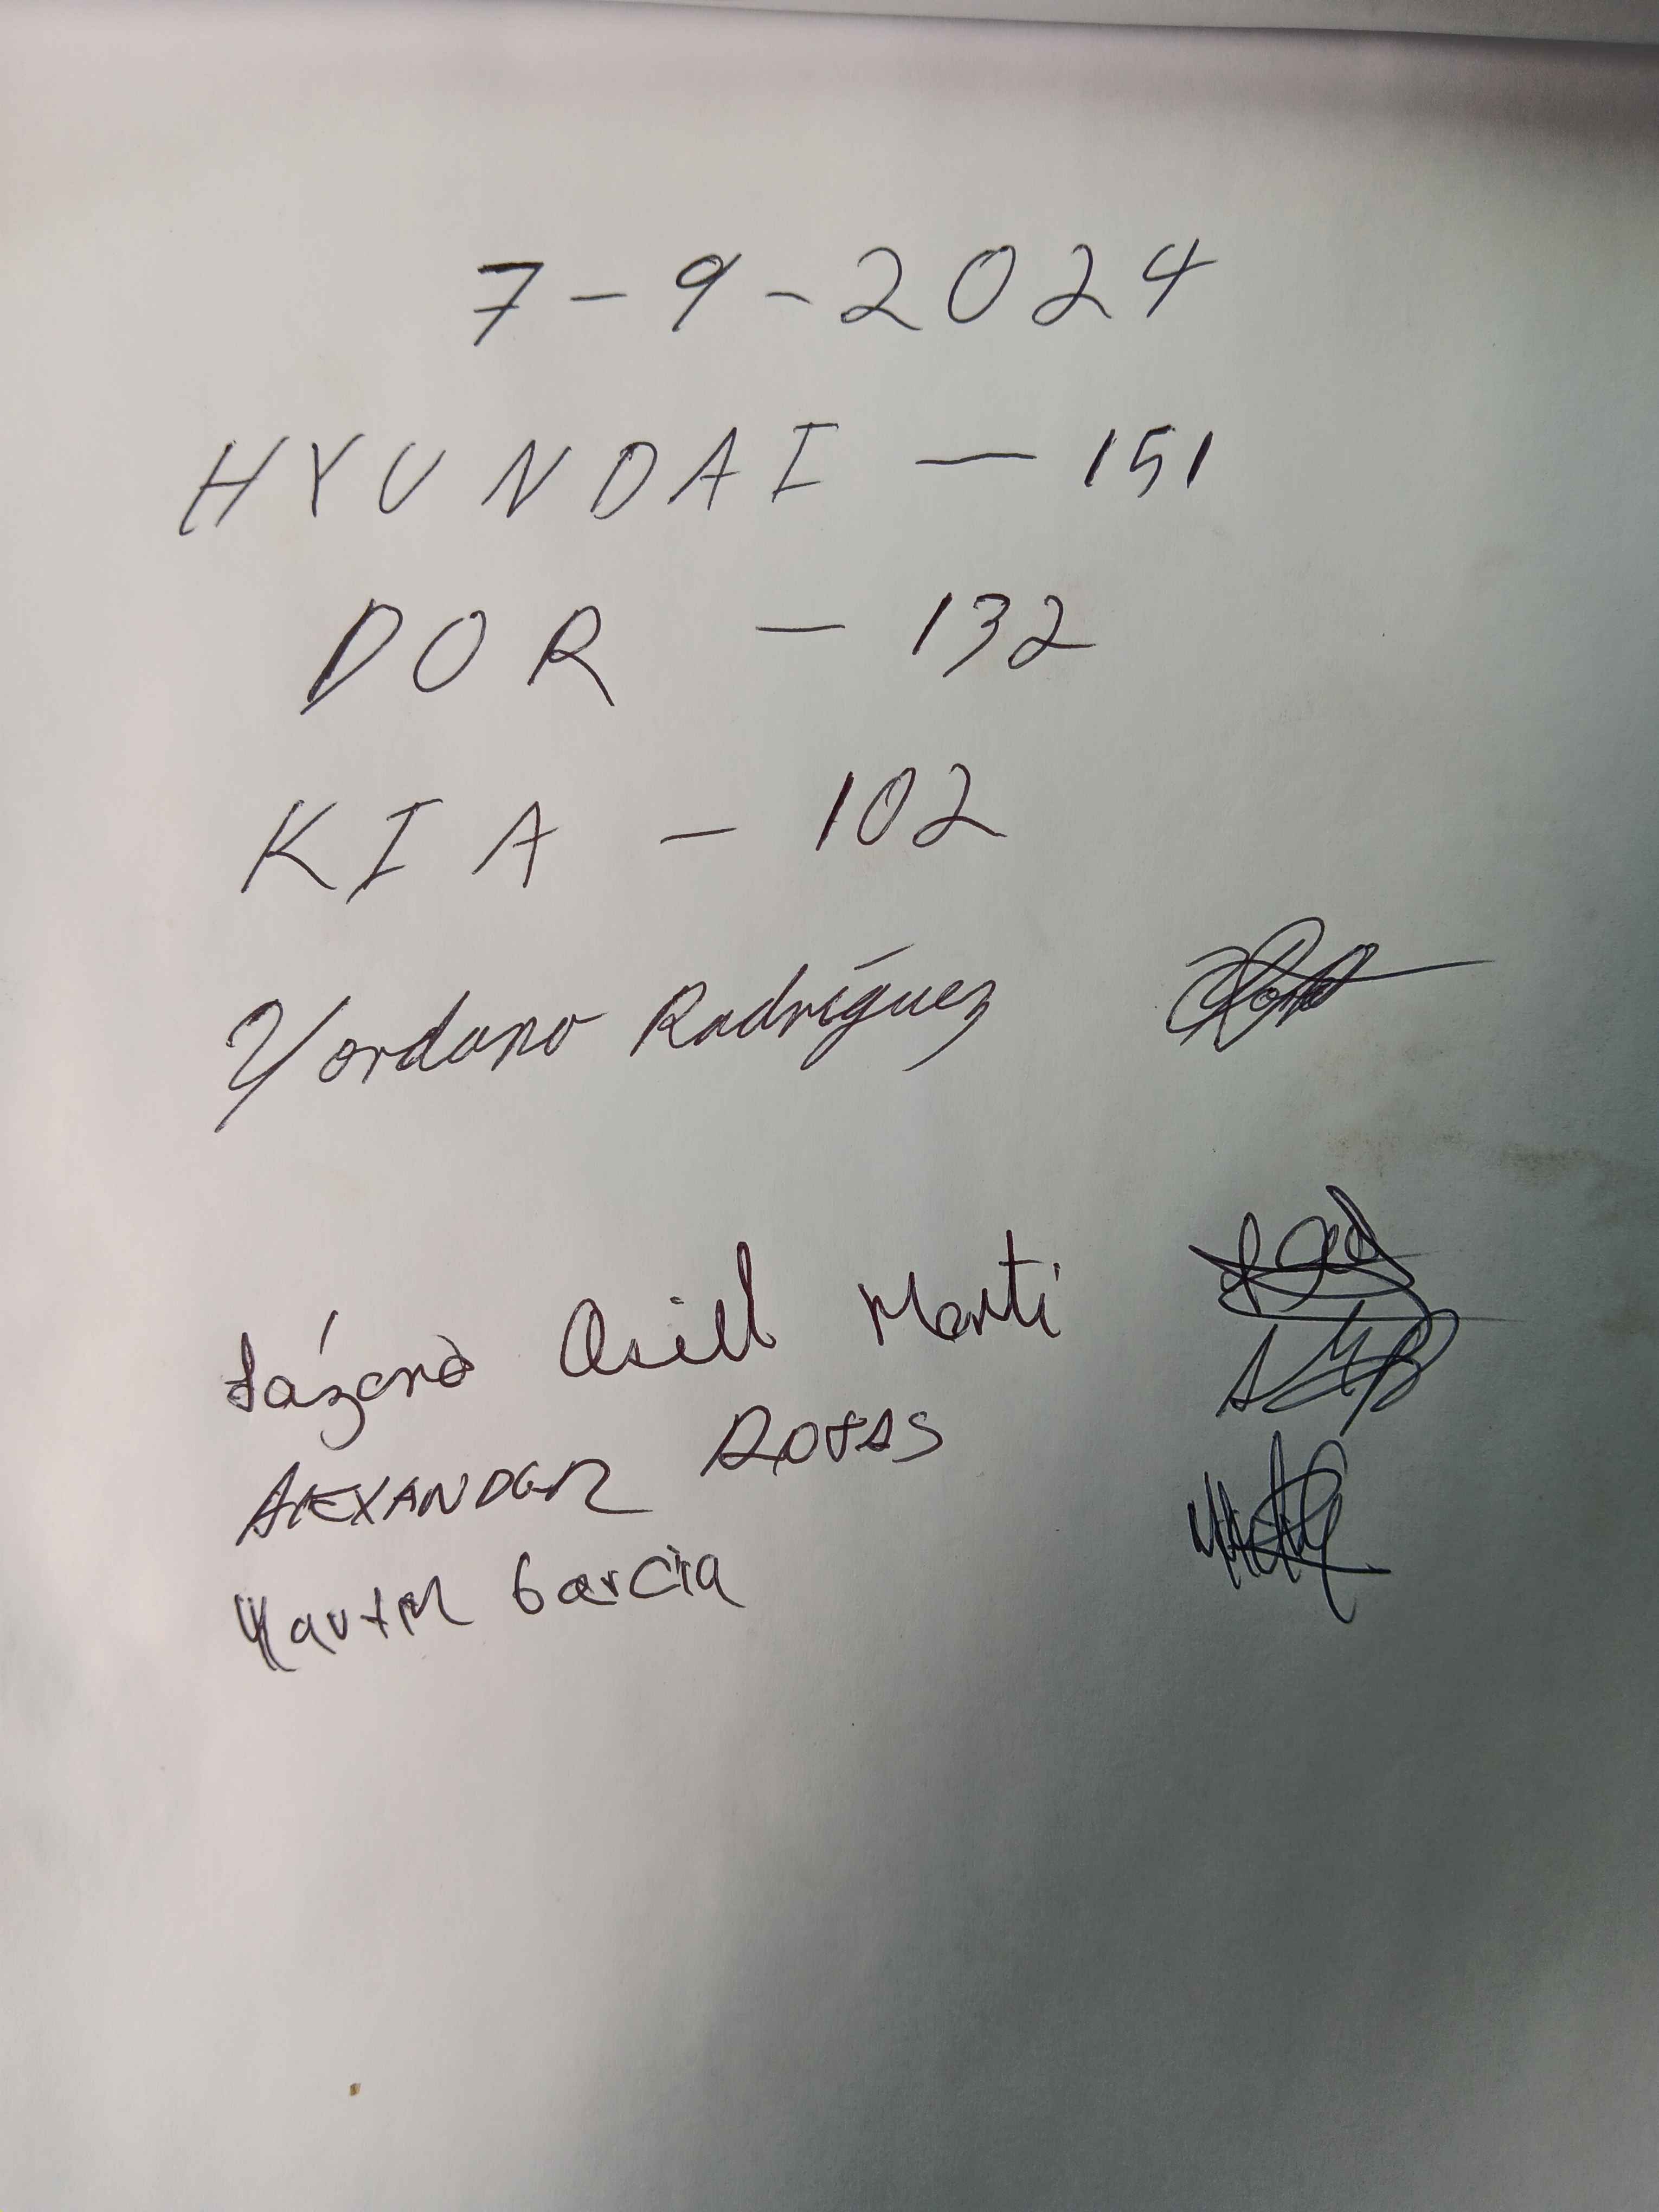 7-9-2024
HYUNDAI — 151
DOR — 132
KIA — 102
Yordano Rodríguez
Lázaro Marti
ALEXANDER ROJAS
Garcia